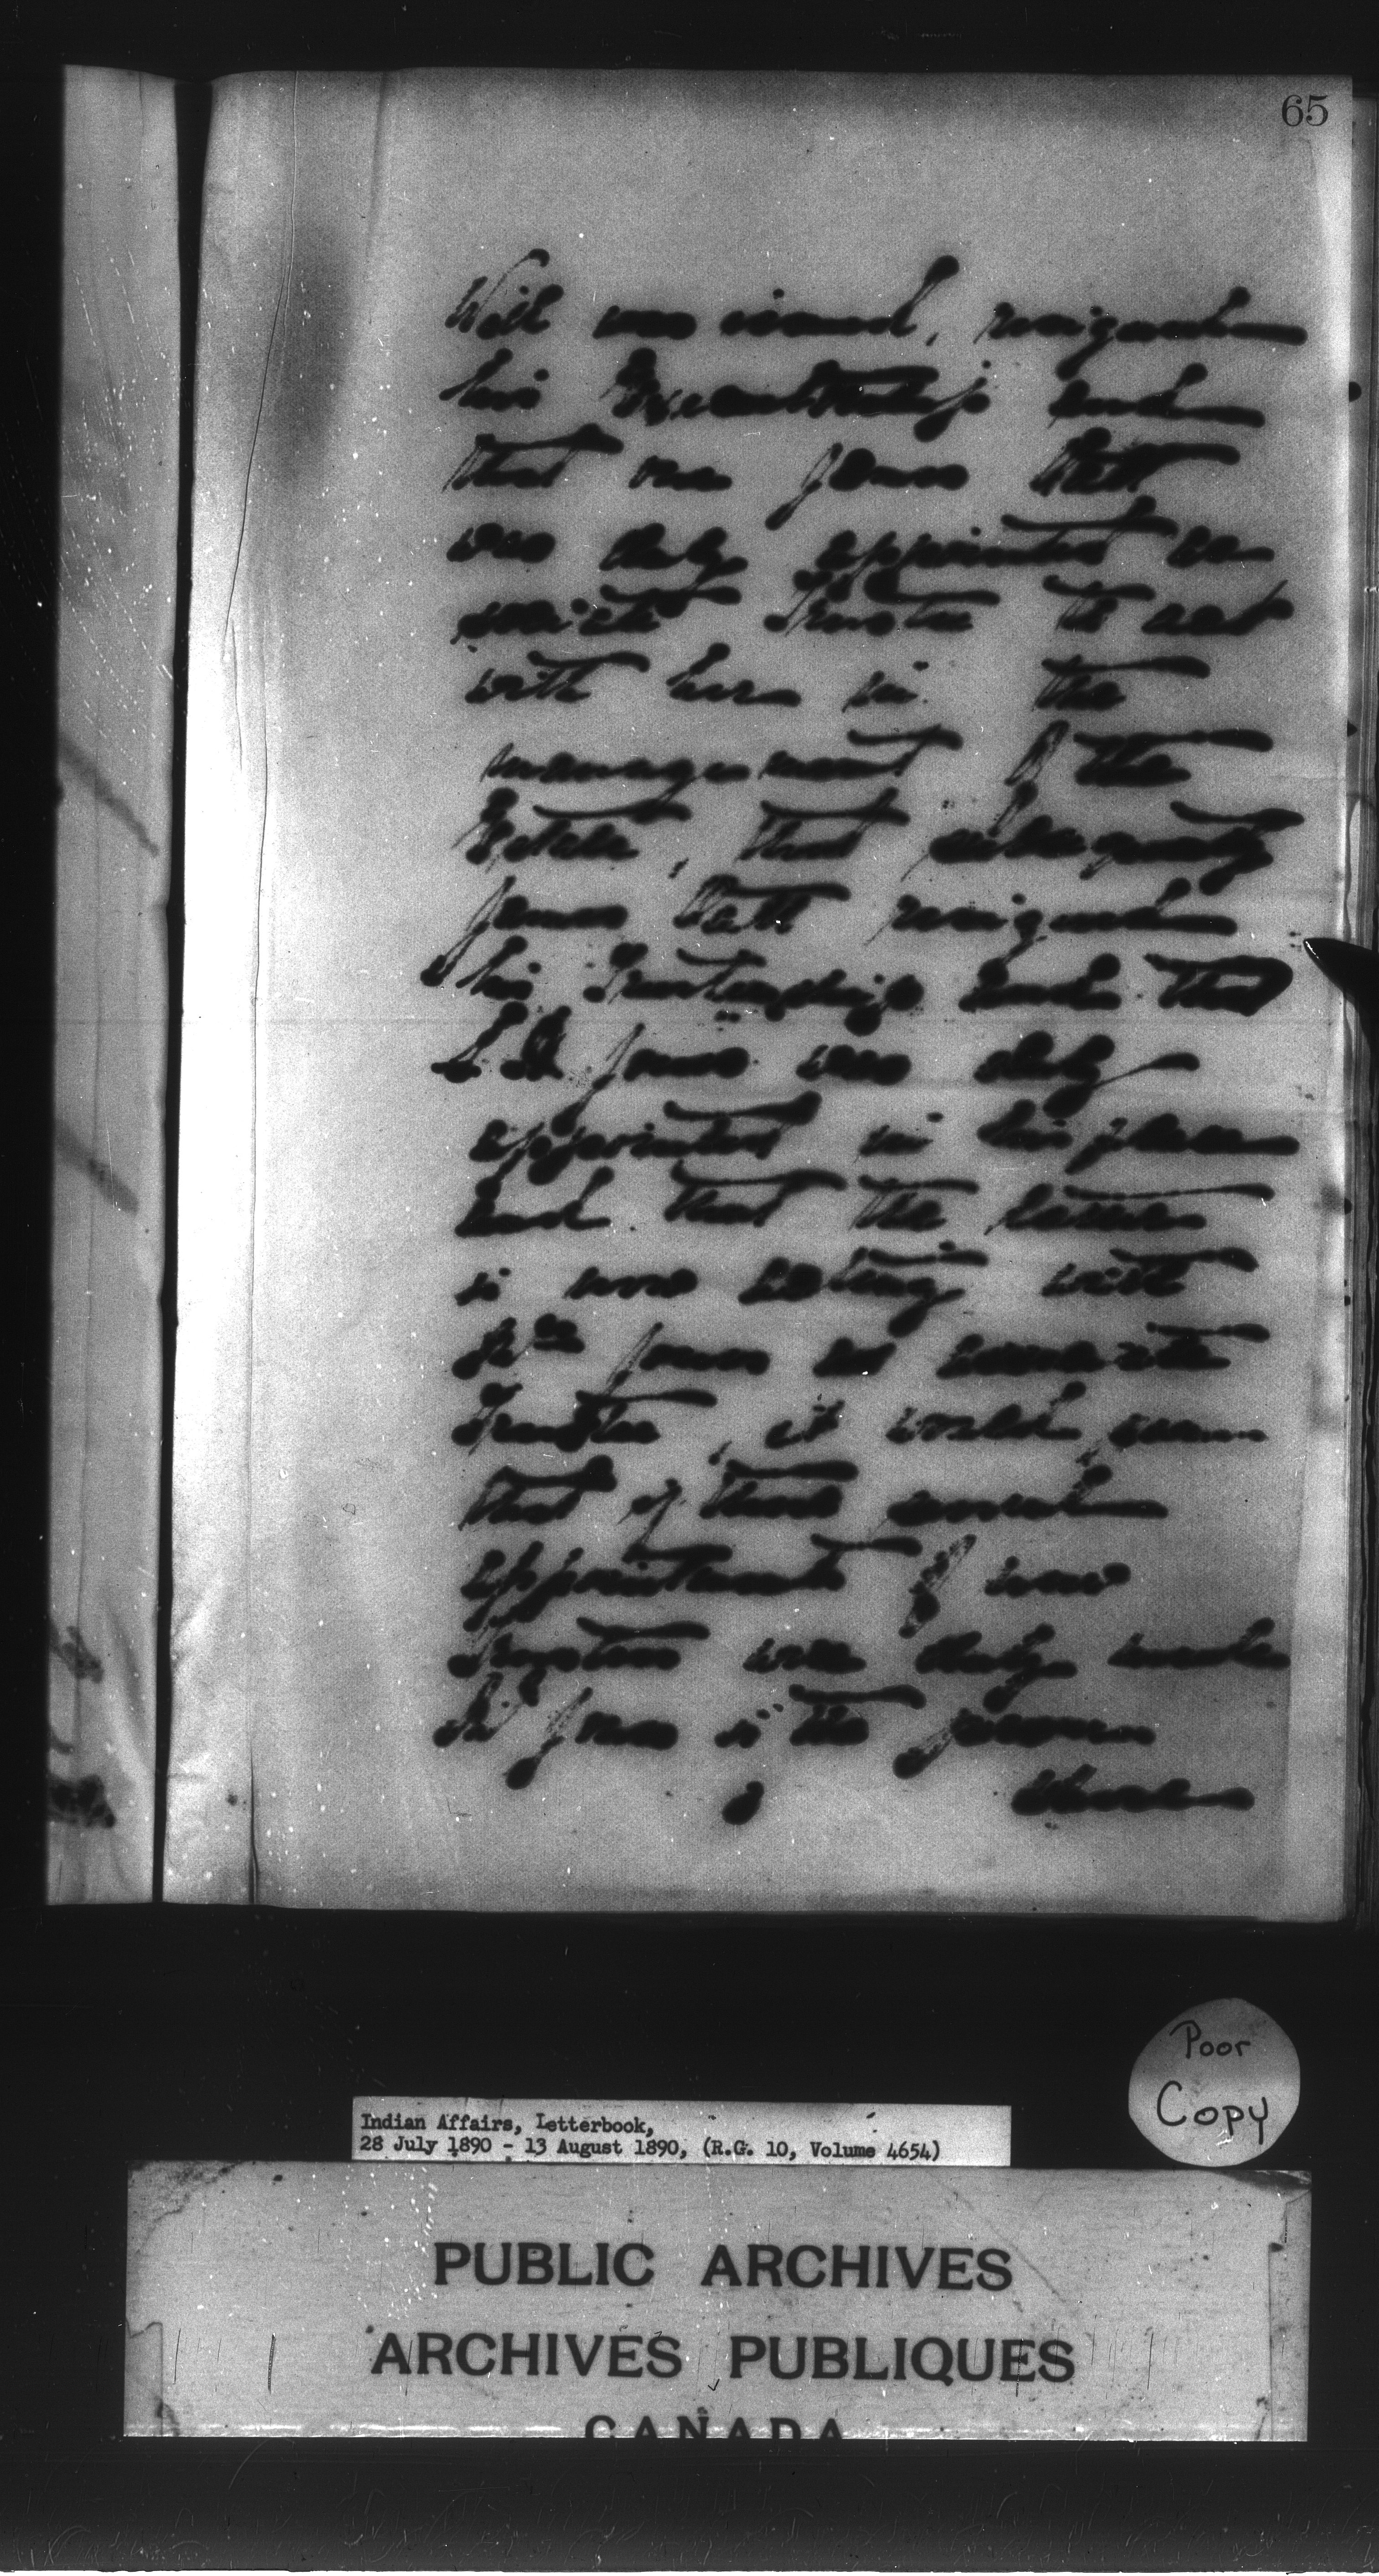 65
Will was issued, resigned
his Executorship and
that one James Batt
was duly appointed as
Trustee to act
with her in the
management of the
Estate, that subsequently
James Batt resigned
his Trusteeship and that
Jones was duly
appointed in his place
and that the latter
is now acting with
Jones as
Trustee, it would seem
that if these several
appointments of new
Trustees were duly made
Jones is the person
whose
Poor
Copy
Indian Affairs, Letterbook,
28 July 1890 - 13 August 1890, (R.G. 10, Volume 4654)
PUBLIC ARCHIVES
ARCHIVES PUBLIQUES
CANADA